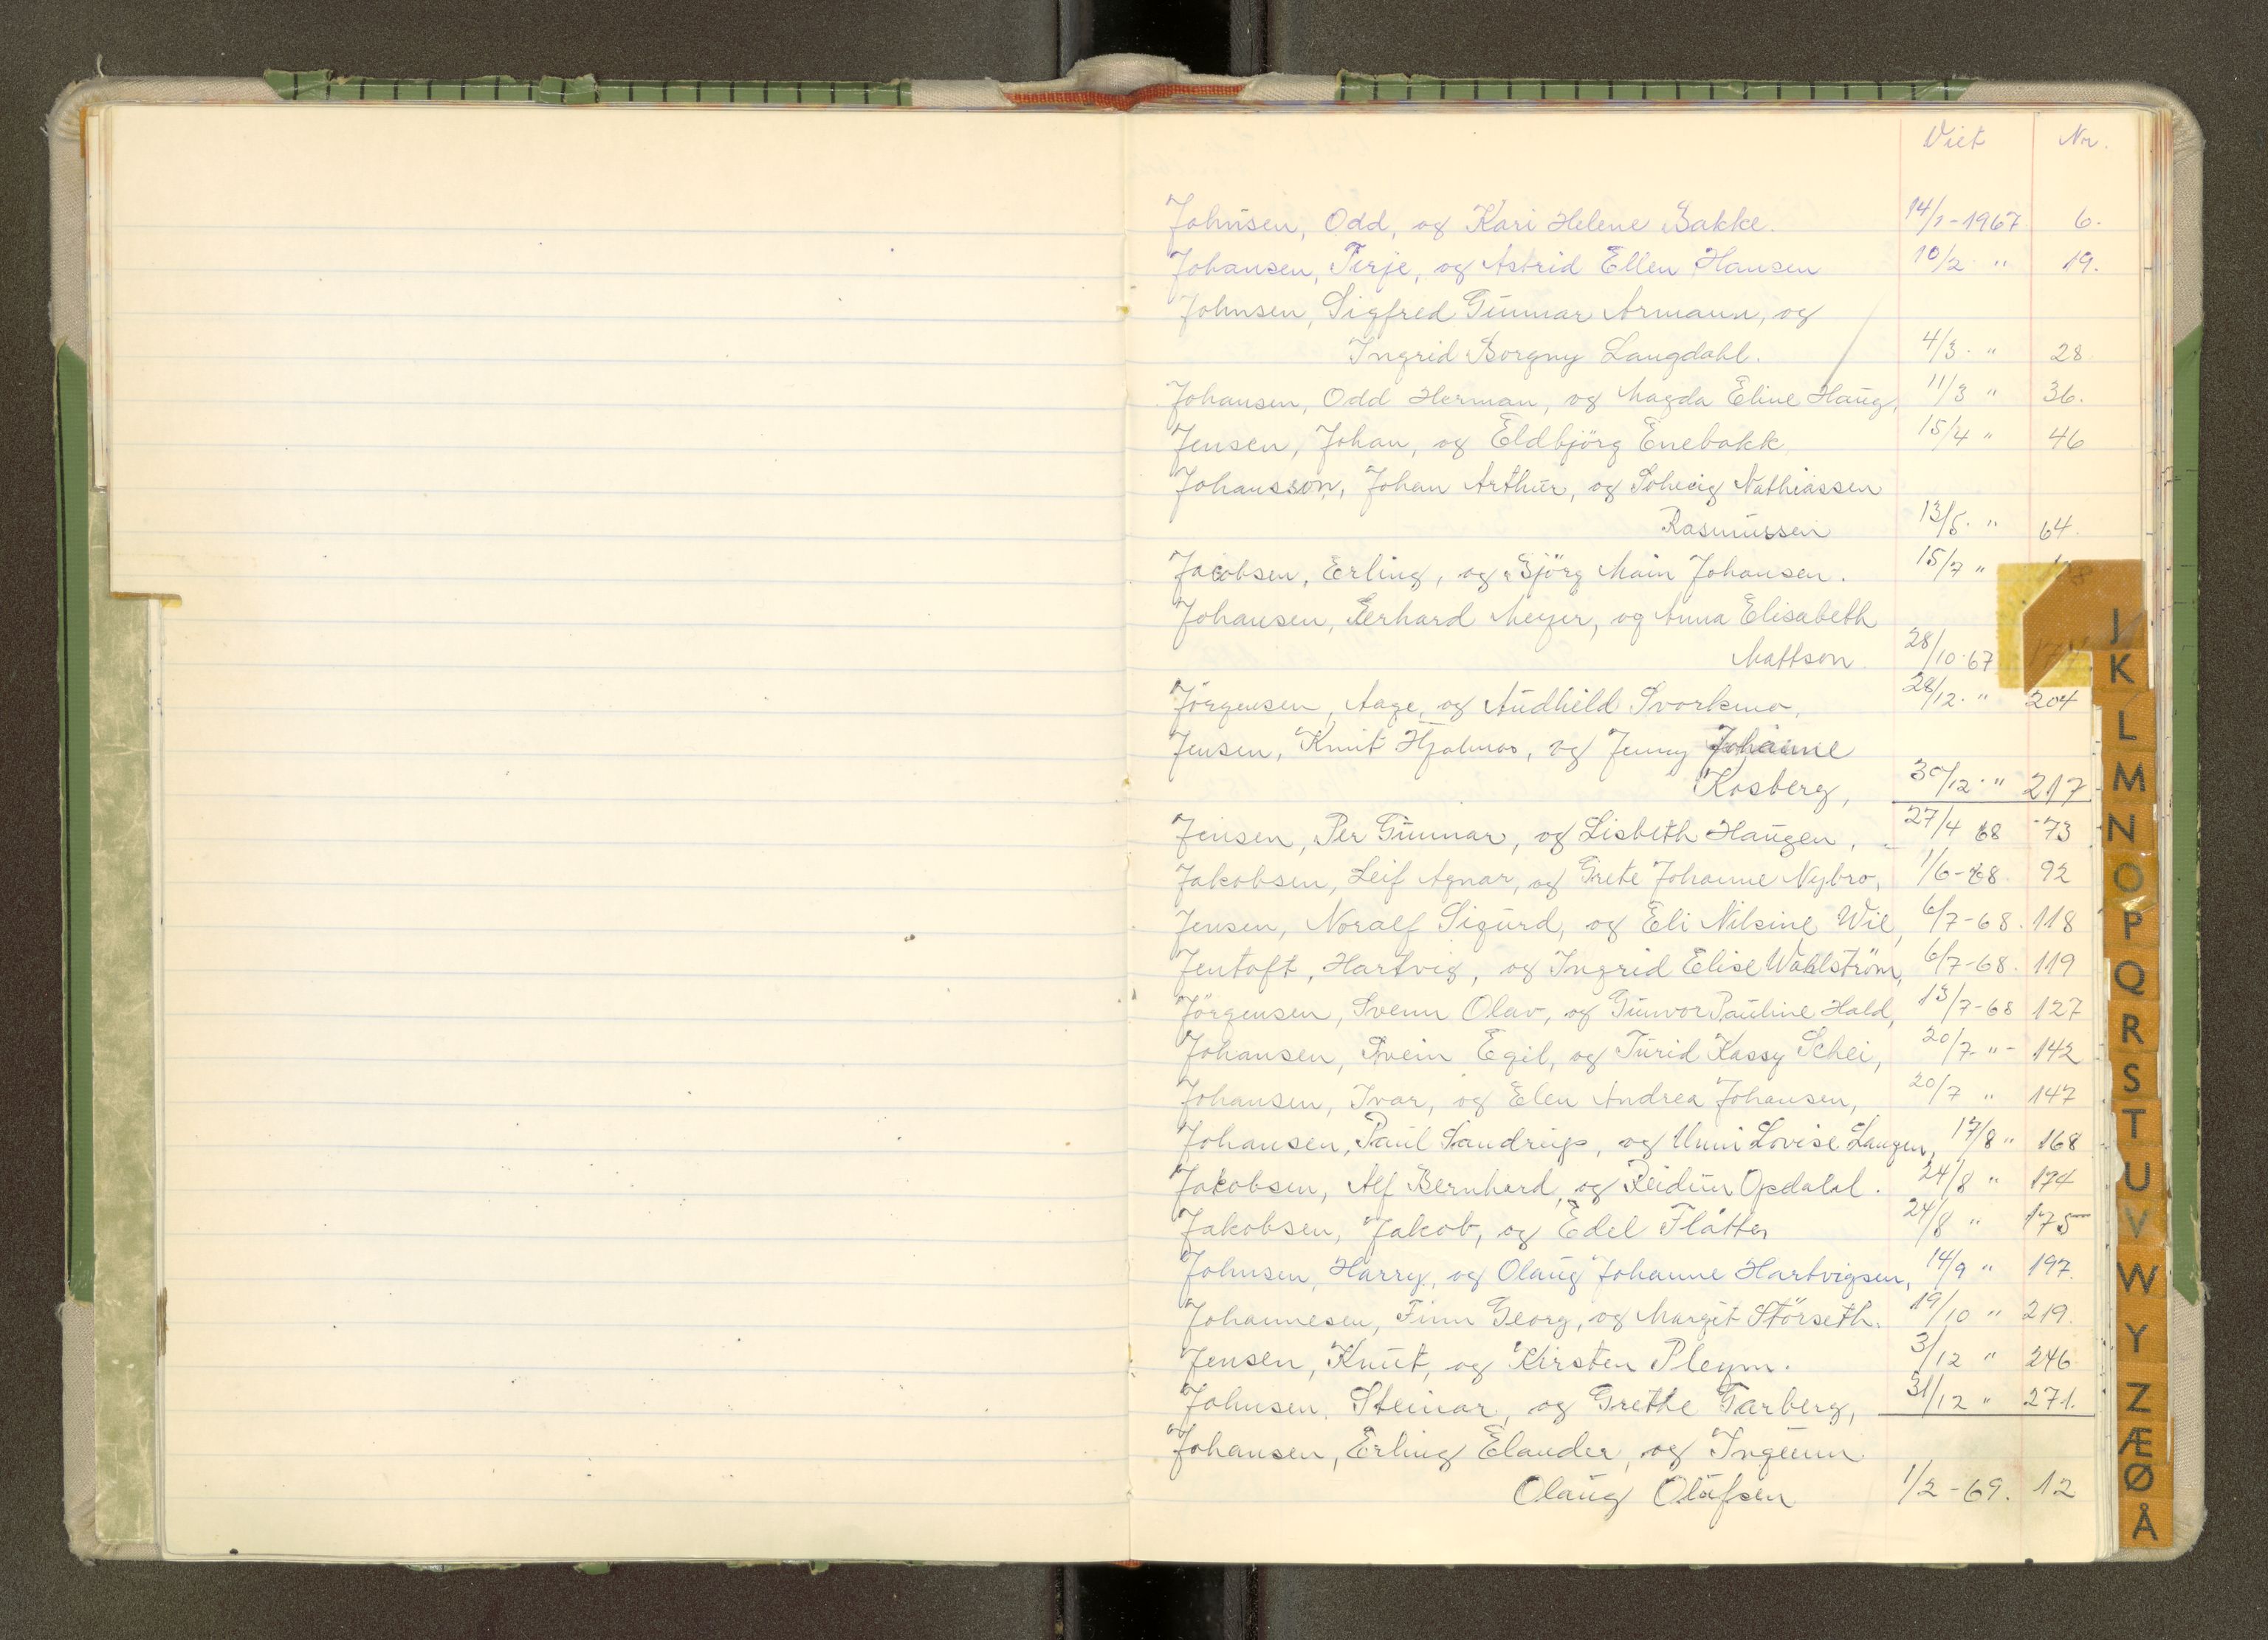 Viet Nr.
Johnsen, Odd, og Kari Helene Bakke. 14/1-1967 6.
Johansen, Terje, og Astrid Ellen Hansen 10/2 " 19.
Johnsen, Sigfred Gunnar Armann, og
Ingrid Borgny Langdahl. 4/3. " 28
Johansen, Odd Herman, og Magda Eline Haug, 11/3 " 36.
Jensen, Johan, og Eldbjörg Enebakk 15/4 " 46
Johansson, Johan Arthur, og Solveig Mathiassen
Rasmussen 13/5. " 64.
Jacobsen, Erling, og Björg Main Johansen. 15/7 "
Johansen, Gerhard Meyer, og Anna Elisabeth
Mattson. 28/10-67
Jörgensen, Aage, og Audhild Svorkmo, 28/12. " 204
Jensen, Knut Hjalmar, og Jenny Johanne
Kosberg, 30/12. " 217
Jensen, Per Gunnar, og Lisbeth Haugen, 27/4 68 73
Jakobsen, Leif Agnar, og Grete Johanne Nybro, 1/6-68. 92
Jensen, Noralf Sigurd, og Eli Nilsine Wie, 6/7-68. 118
Jentoft, Hartvig, og Ingrid Elise Wahlström, 6/7-68. 119
Jörgensen, Svenn Olav, og Gunvor Pauline Hald, 13/7-68 127
Johansen, Svein Egil, og Turid Kassy Schei, 20/7-"- 142
Johansen, Ivar, og Elen Andrea Johansen, 20/7 " 147
Johansen, Paul Sandrup, og Unni Lovise Langen, 17/8 " 168
Jakobsen, Alf Bernhard, og Reidun Opdahl. 24/8 " 174
Jakobsen, Jakob, og Edel Flåtten 24/8 " 175
Johnsen, Harry, og Olaug Johanne Hartvigsen, 14/9 " 197.
Johannesen, Finn Georg, og Margit Störseth. 19/10 " 219.
Jensen, Knut, og Kirsten Pleym. 3/12 " 246
Johnsen, Steinar, og Grethe Garberg, 31/12 " 271.
Johansen, Erling Elander, og Ingunn
Olaug Olufsen 1/2-69. 12
J
K
L
M
N
O
P
Q
R
S
T
U
V
W
Y
Z
Æ
Ø
Å